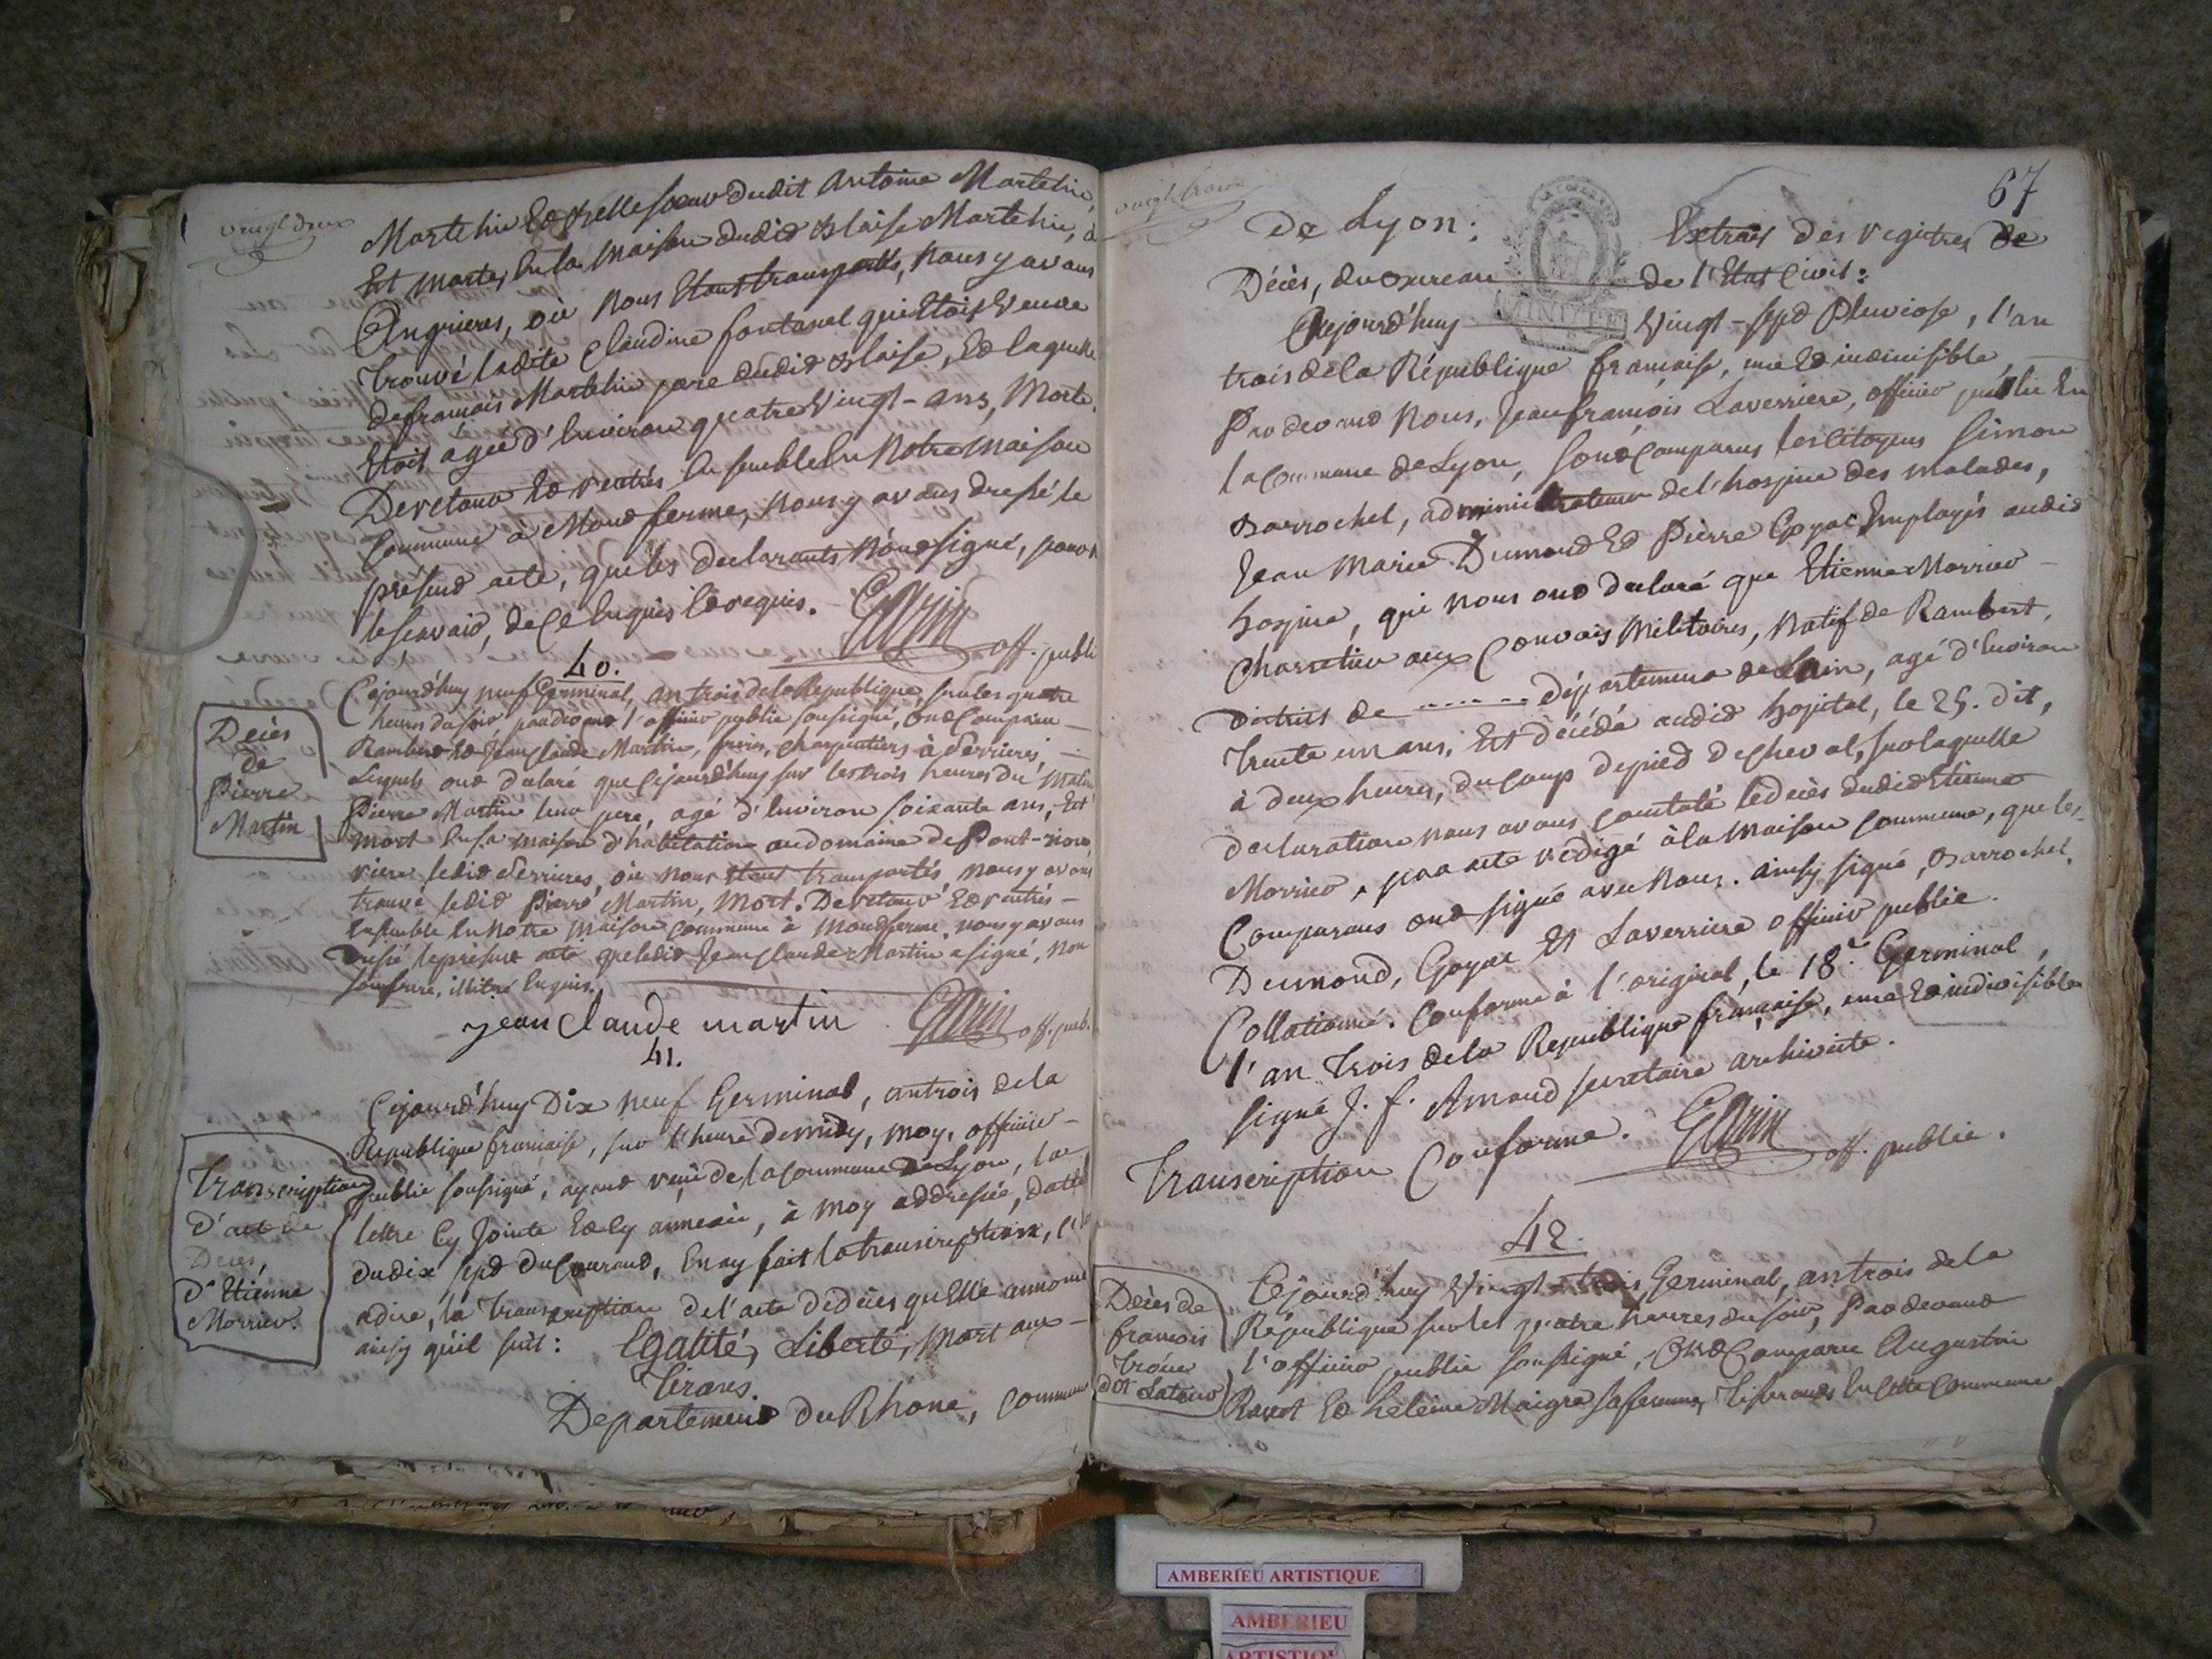 vingt deux
Martelin Et belle soeur dudit Antoine Martelin,
Est morte, En la maison dudit Blaise Martelin, à
Angrieres, où nous Etant transportés, nous y avons
trouvé ladite Claudine fontanel qui Etoit Veuve
de françois Martelin pere dudit Blaise, Et laquelle
Etoit agée d'Environ quatre Vingt-ans, Morte.
De retour Et rentrés Ensemble En Notre maison
Commune à Montferme, nous y avons dressé le
présent acte, que les declarants N'ont signé, pour ne
le scavoir, de ce Enquis Et requis. Garin
off. publi
40.
Décès
de
Pierre
Martin
Cejourd'huy neuf Germinal, an trois de la République, sur les quatre
heures du soir, pardevant l'officier public soussigné, ont Comparu
Rambert Et Jean Claude Martin, freres, Charpentiers à Serrieres,
Lesquels ont declaré que Cejourd'huy sur les trois heures du Matin
Pierre Martin leur pere, agé d'Environ soixante ans, Est
mort En sa maison d'habitation au domaine de Pont-
riere ledit Serrieres, où nous Etant transportés, nous y avons
trouvé ledit Pierre Martin, Mort. De retour Et rentrés
Ensemble En Notre maison Commune à Montferme, nous y avons
dressé le présent acte que ledit Jean Claude Martin a signé, non
son frere, illitré Enquis.
jean Claude martin Garin off. pub.
41.
Transcription
d'acte de
Décès,
d'Etienne
Morrier.
Cejourd'huy Dix neuf Germinal, an trois de la
République française, sur l'heure de midy, moy, officier
public soussigné, ayant reçu de la Commune de Lyon, la
lettre Cy Jointe Et Cy annexée, à moy addressée, datée
du dix sept du Courant, En ay fait la transcription, c'est
adire, la transcription de l'acte de décès qu'Elle annonce
ainsy qu'il suit: Egalité, Liberté, Mort aux
Tirans.
Departement du Rhone, Commune
vingt trois
67
De Lyon: Extrait des registres de
Décès, du Bureau de l'Etat Civil:
Cejourd'huy Vingt-sept Pluviose, l'an
trois de la République française, une Et indivisible,
Par devant Nous, Jean françois Laverriere, officier public En
la Commune de Lyon, sont Comparus les Citoyens Simon
Barrochel, administrateur de l'hospice des malades,
Jean Marie Dumond Et Pierre Goyat Employés audit
hospice, qui nous ont declaré que Etienne Morrier
Charretier aux Convois Militaires, Natif de Rambert,
District de ........ département de Lain, agé d'Environ
trente un ans, Est décédé audit hopital, le 25. dit,
à deux heures, du Coup de pied de cheval, sur laquelle
declaration nous avons constaté le décès dudit Etienne
Morrier, par acte rédigé à la maison commune, que les
Comparans ont signé avec nous. ainsy signé, Barrochel,
Dumond, Goyat Et Laverriere officier public.
Collationné. Conforme à l'original, le 18.e Germinal,
l'an trois de la Republique française, une Et indivisible
signé J. f. Arnaud secretaire archiviste.
Transcription Conforme. Garin
off. public.
42.
Décès de
françois
trouve
dit Latour
Cejourd'huy Vingt-trois Germinal, an trois de la
République sur les quatre heures du soir, Par devant
l'officier public soussigné, Ont Comparu Augustin
Ravet Et heleine Maigre sa femme, tisserands En cette Commune
AMBERIEU ARTISTIQUE
AMBERIEU
ARTISTIQUE